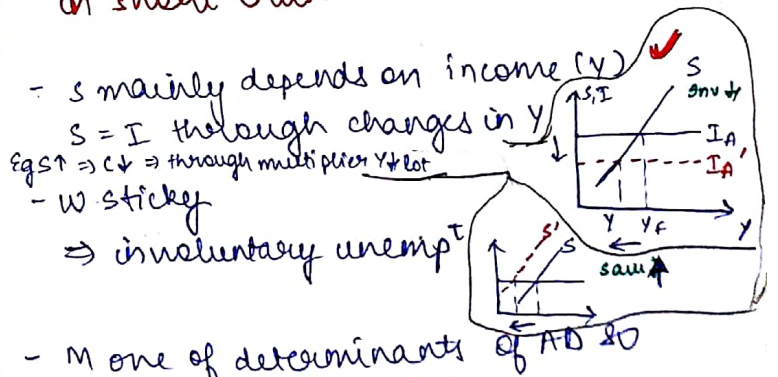 in short run
- S mainly depends on income (Y)
S = I through changes in Y
Eg S↑ ⇒ C↓ ⇒ through multiplier Y↓ lot
- W sticky
⇒ involuntary unempᵗ
- M one of determinants of AD so
S,I
S
Inv ↓
I_A
I_A'
Y Y_F Y
S' S
Sav ↑